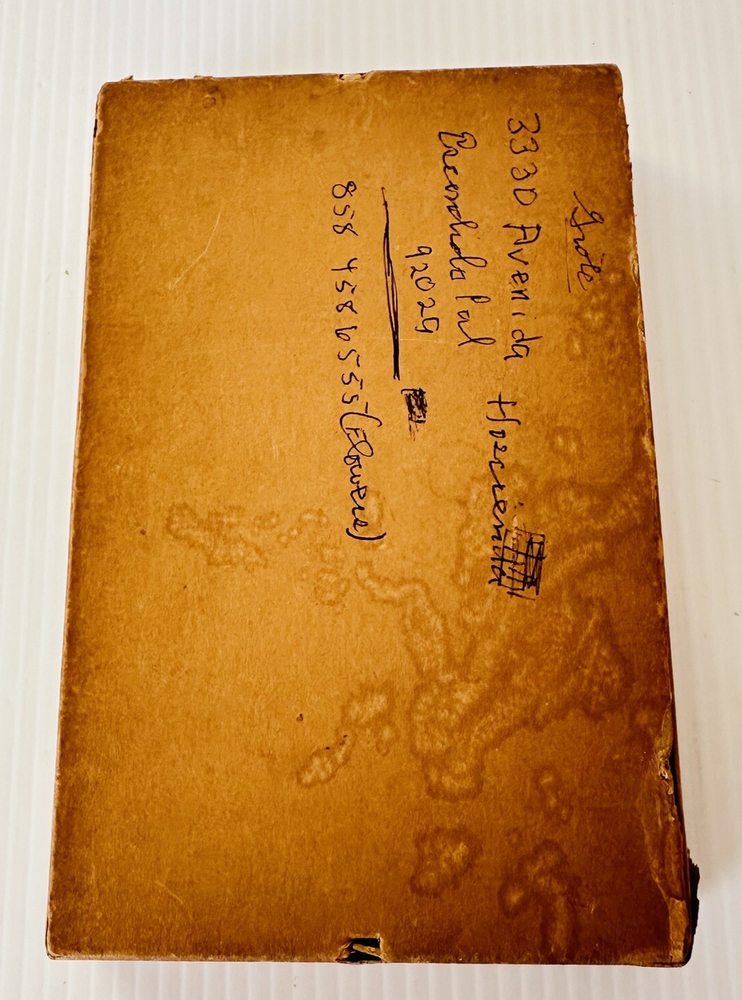 Grote
3330 Avenida Hacienda
Escondido Cal
92029
858 458 6555 (Flowers)